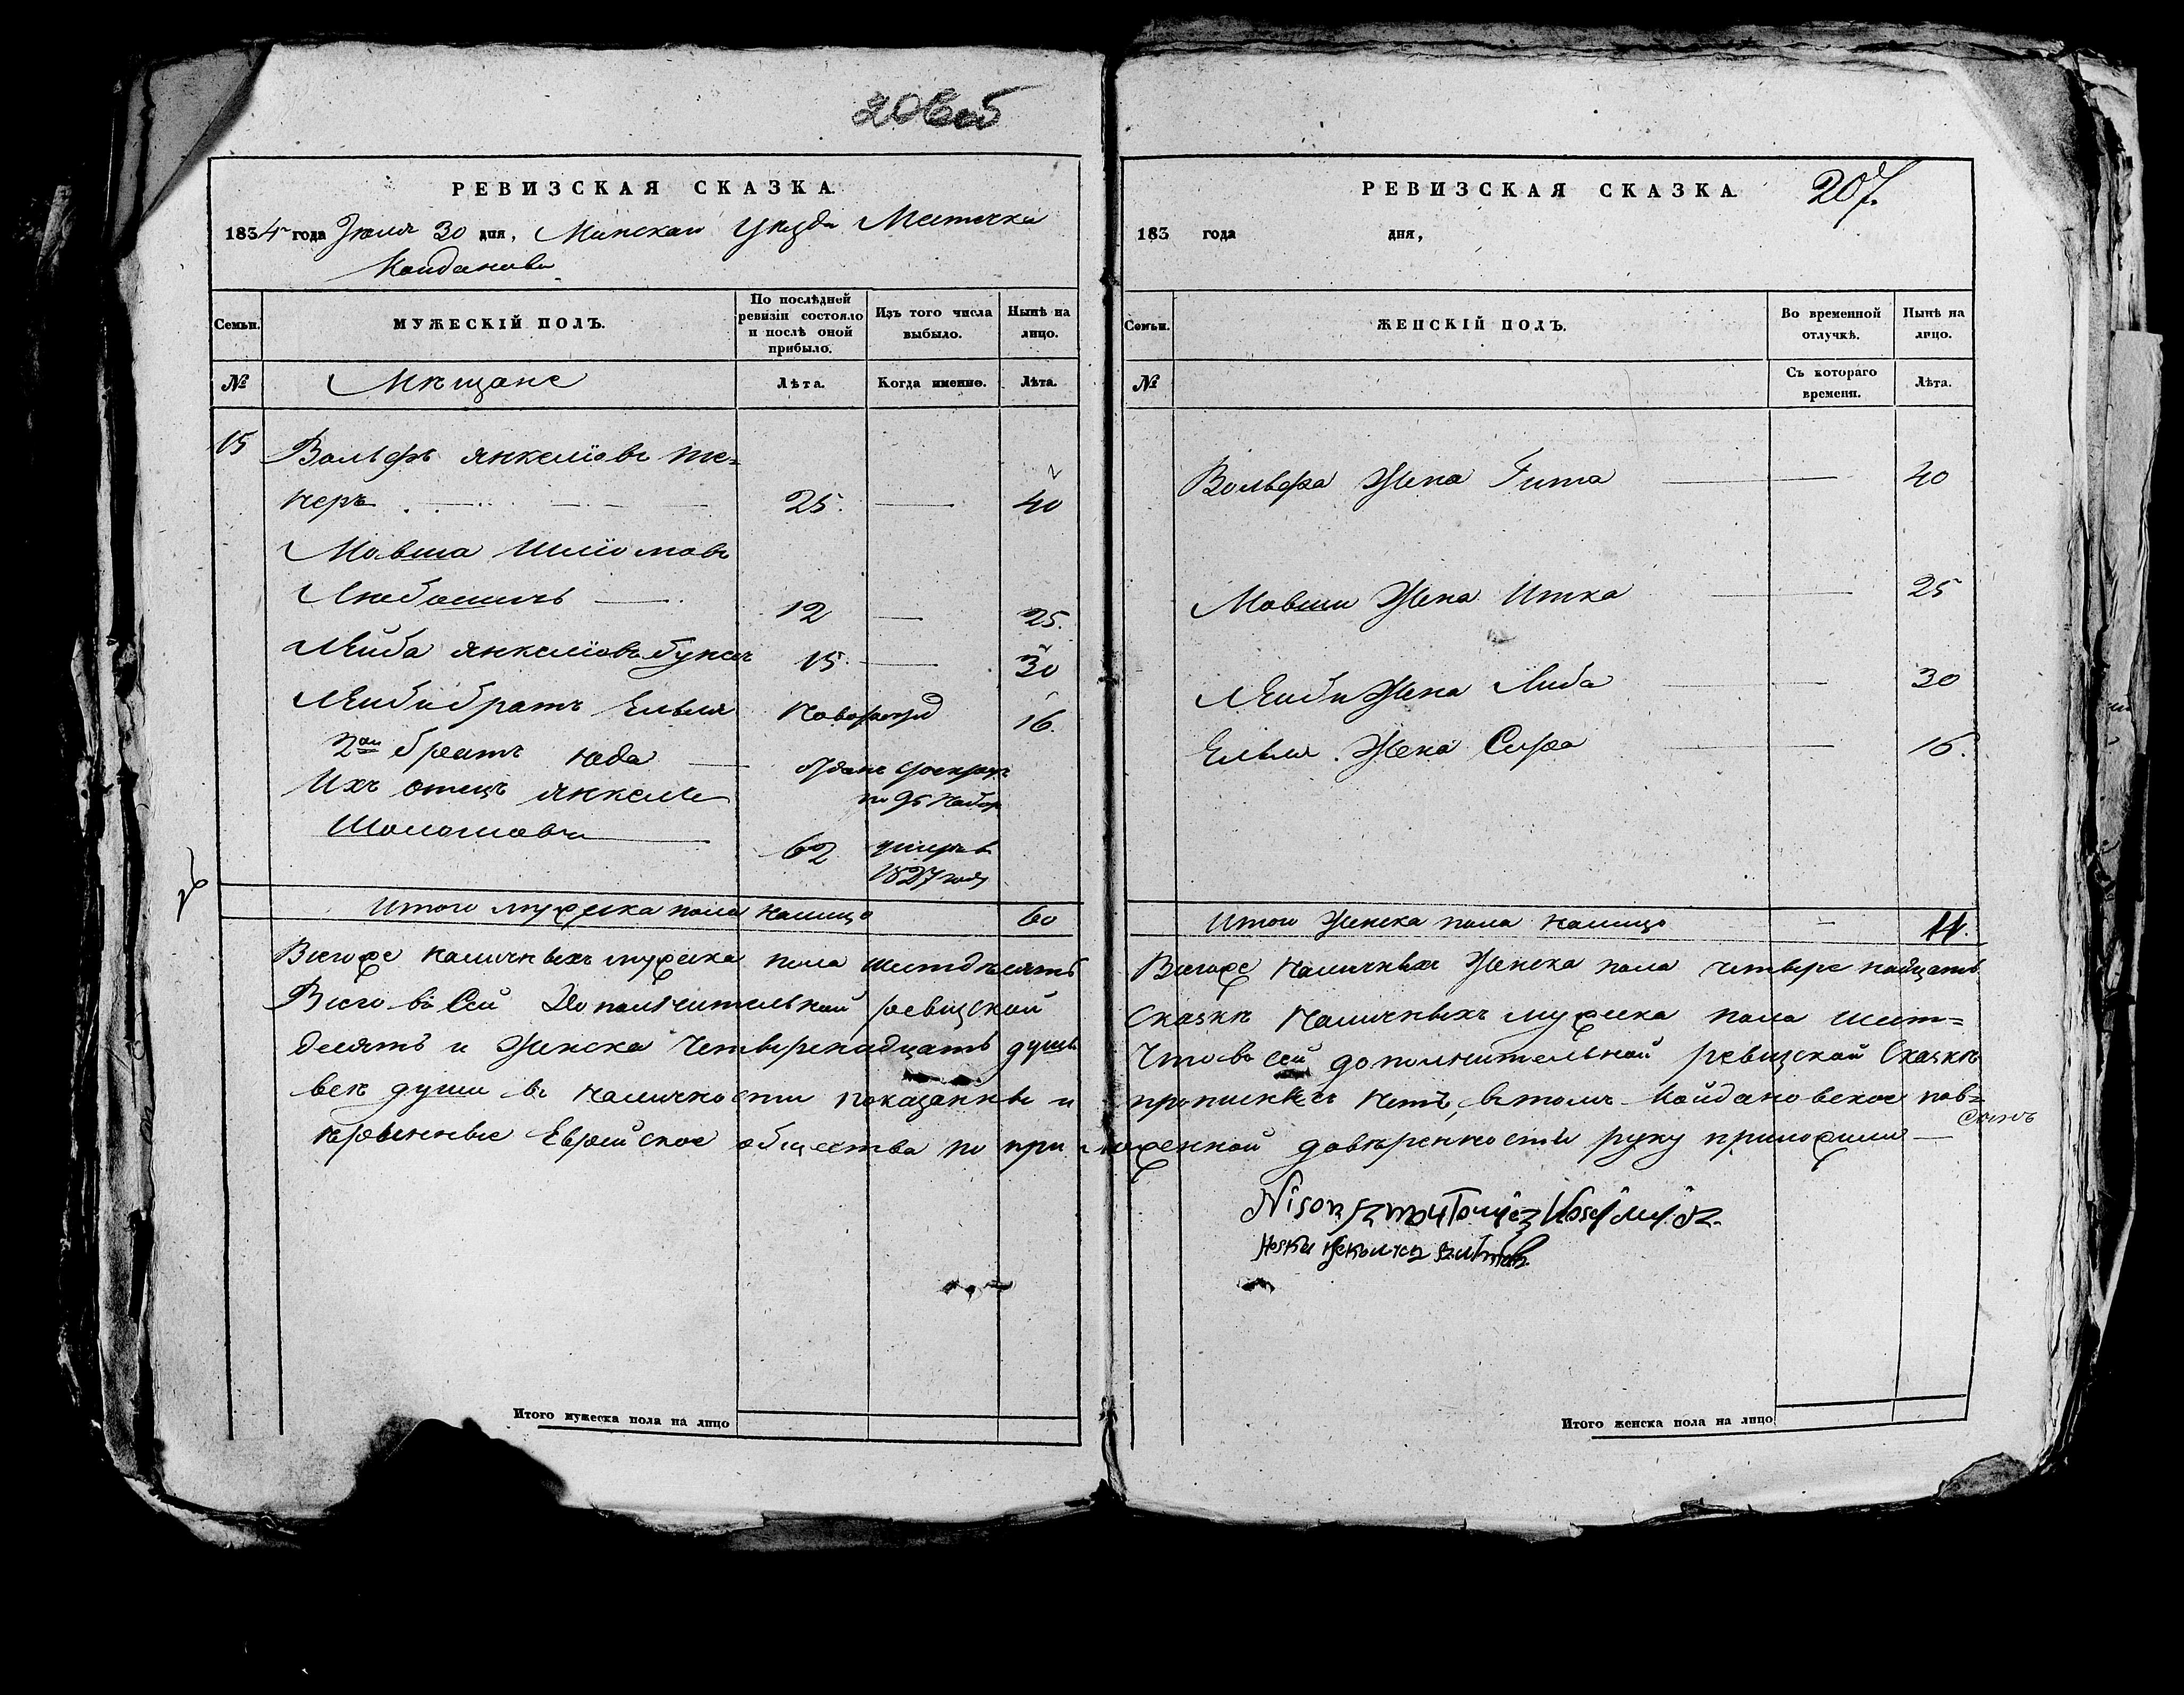 РЕВИЗСКАЯ СКАЗКА.
1834 года Июля 30 дня, Минскаго Уѣзда Местечка
Койданова
Семьи.
МУЖЕСКІЙ ПОЛЪ.
По послѣдней ревизіи состояло и послѣ оной прибыло.
Изъ того числа выбыло.
Нынѣ на лицо.
№
Мѣщане
Лѣта.
Когда именно.
Лѣта.
15
Вольфъ Янкеліовъ
25. 40
Мовша Шліомовъ
12 25.
Лейба Янкеліовъ 15. 30
Лейби братъ Ельля 16.
2ой братъ Юда
Ихъ отецъ Янкель
Шоломовъ
62 умеръ в
1827 году
Итого мужеска пола налицо 60
Всегоже наличныхъ мужеска пола шестдѣсятъ
Всего въ Сей Дополнительной ревизской
десятъ и Женска Четыренадцать душъ
век души въ наличности показанны и
Еврейское общества по при
Итого мужеска пола на лицо
РЕВИЗСКАЯ СКАЗКА.
207.
183 года дня,
Семьи.
ЖЕНСКІЙ ПОЛЪ.
Во временной отлучкѣ.
Нынѣ на лицо.
№
Съ котораго времени.
Лѣта.
Вольфа Жена Гита 40
Мовши Жена Итка 25
Лейби Жена Либа 30
Ельля Жена Сира 16.
Итого Женска пола налицо 14.
Всегоже Наличныхъ Женска пола четыре надцать
Сказкѣ Наличныхъ мужеска пола шест=
Что въ сей дополнительной ревизской Сказкѣ
Нетъ, въ томъ Койдановское
ложенной довѣренности руку приложили
Nison
Итого женска пола на лицо